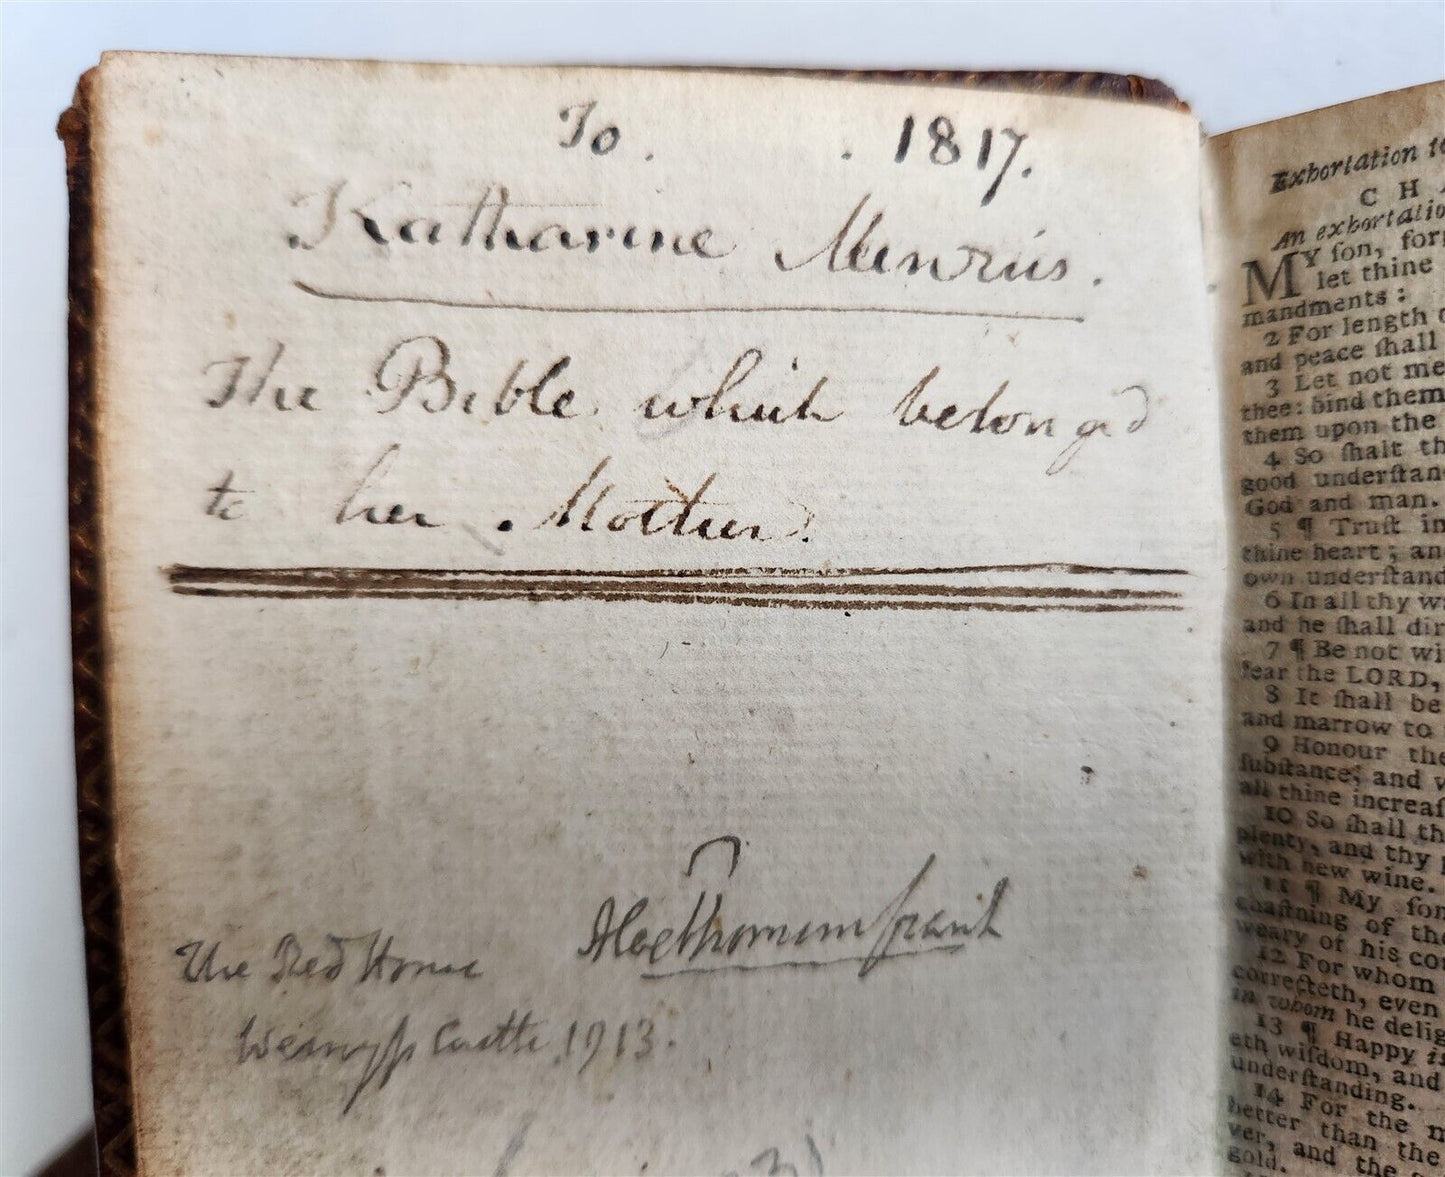 To . . 1817.
Katharine Menzies.
The Bible which belonged
to her Mother.
The Red House
Wemyss Castle. 1913.
Exhortation to
C H A
An exhortatio
MY ſon, forg
let thine
mandments:
2 For length o
and peace ſhall
3 Let not me
thee: bind them
them upon the
4 So ſhalt th
good underſtan
God and man.
5 ¶ Truſt in
thine heart; an
own underſtand
6 In all thy w
and he ſhall dir
7 ¶ Be not wi
fear the LORD,
8 It ſhall be
and marrow to
9 Honour the
ſubſtance, and w
all thine increaſ
10 So ſhall th
plenty, and thy p
with new wine.
11 ¶ My ſon
chaſtning of the
weary of his cor
12 For whom
correcteth, even
in whom he delig
13 ¶ Happy is
eth wiſdom, and
underſtanding.
14 For the m
better than the
ver, and the g
gold.